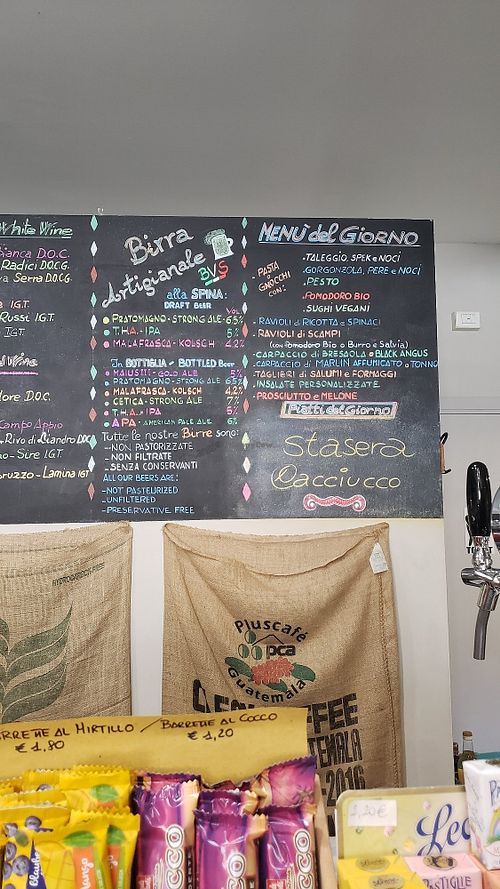 White Wine
Bianca D.O.C.
Radici D.O.C.G.
Serra D.O.C.G.
I.G.T.
Russi I.G.T.
IGT
Wine
D.O.C.
Campo Appio
Rivo di Liandro DOC
Sire IGT
Lamina IGT
Birra
Artigianale
BVS
alla SPINA:
DRAFT BEER
VOL
PRATOMAGNO - STRONG ALE - 6.5%
T.H.A. - IPA 5%
MALAFRASCA - KOLSCH 4.2%
In BOTTIGLIA - BOTTLED Beer
MAIUSTIT - GOLD ALE 5%
PRATOMAGNO - STRONG ALE 6.5%
MALAFRASCA - KOLSCH 4.2%
CETICA - STRONG ALE 7%
T.H.A. - IPA 5%
APA - AMERICAN PALE ALE 6%
Tutte le nostre Birre sono:
-NON PASTORIZZATE
-NON FILTRATE
-SENZA CONSERVANTI
ALL OUR BEERS ARE:
-NOT PASTEURIZED
-UNFILTERED
-PRESERVATIVE FREE
MENU del GIORNO
- PASTA
GNOCCHI
CON:
.TALEGGIO, SPEK e NOCI
.GORGONZOLA, PERE e NOCI
.PESTO
.POMODORO BIO
.SUGHI VEGANI
- RAVIOLI di RICOTTA e SPINACI
- RAVIOLI di SCAMPI
(con Pomodoro Bio o Burro e Salvia)
-CARPACCIO di BRESAOLA o BLACK ANGUS
-CARPACCIO di MARLIN AFFUMICATO o TONNO
-TAGLIERI di SALUMI e FORMAGGI
- INSALATE PERSONALIZZATE
- PROSCIUTTO e MELONE
Piatti del Giorno
stasera
Cacciucco
Pluscafé
pca
Guatemala
BARRETTE AL MIRTILLO / BARRETTE AL COCCO
€ 1,80 € 1,20
Leo
PASTIGLIE